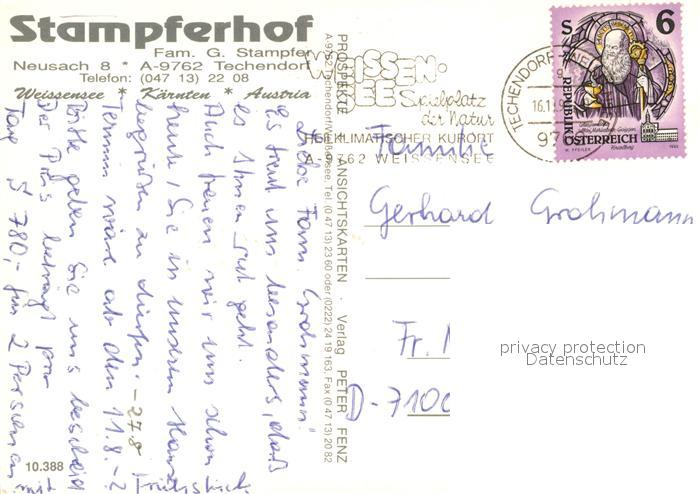 Stampferhof
Fam. G. Stampfer
Neusach 8 * A-9762 Techendorf
Telefon: (047 13) 22 08
Weissensee * Kärnten * Austria
Liebe Fam. Grohmann!
Es freut uns besonders, daß
es Ihnen gut geht.
Auch freuen wir uns schon
heute, Sie in unserem Haus
begrüßen zu dürfen.
Termin wäre ab dem 11.8. - 27.8
Bitte geben Sie uns Bescheid
Der Preis beträgt pro
Tag S 780,- für 2 Personen mit
Frühstück
10.388
PROSPEKTE · ANSICHTSKARTEN · Verlag PETER FENZ
A-9762 Techendorf/Weißensee, Tel. (0 47 13) 23 60 oder (0222) 24 19 163, Fax (0 47 13) 20 82
WEISSEN-
SEE Spielplatz
der Natur
HEILKLIMATISCHER KURORT
A-9762 WEISSENSEE
TECHENDORF
16.1
97
S 6
REPUBLIK
ÖSTERREICH
Familie
Gerhard Grohmann
Fr.
D-7100
privacy protection
Datenschutz